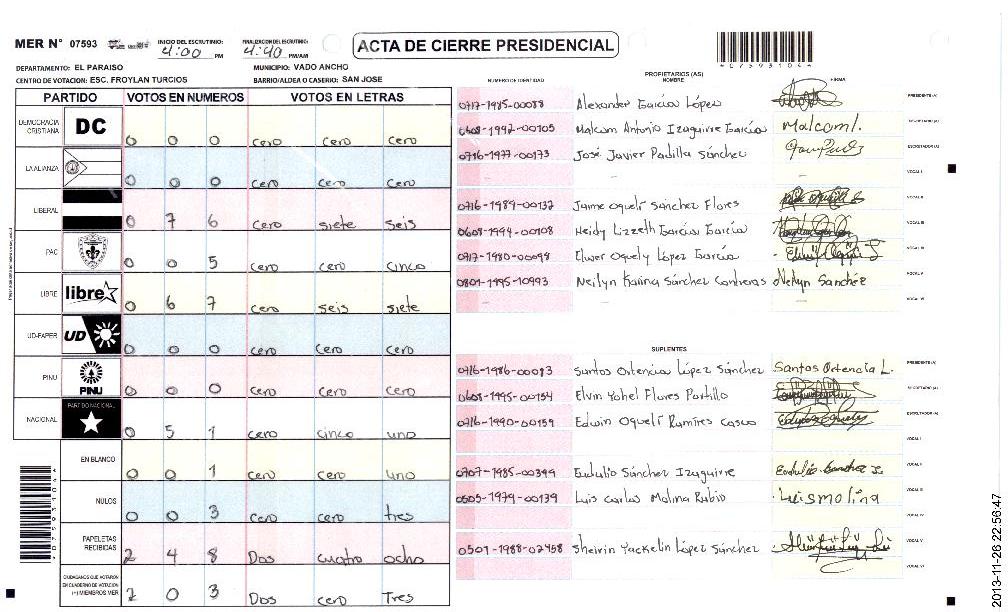 MER N° 07593 INICIO DEL ESCRUTINIO: 4:00 PM FINALIZACION DEL ESCRUTINIO: 4:40 PM/AM ACTA DE CIERRE PRESIDENCIAL
DEPARTAMENTO: EL PARAISO MUNICIPIO: VADO ANCHO
CENTRO DE VOTACION: ESC. FROYLAN TURCIOS BARRIO/ALDEA O CASERIO: SAN JOSE
PARTIDO VOTOS EN NUMEROS VOTOS EN LETRAS
DEMOCRACIA CRISTIANA DC 0 0 0 cero cero cero
LA ALIANZA 0 0 0 cero cero cero
LIBERAL 0 7 6 cero siete seis
PAC 0 0 5 cero cero cinco
LIBRE libre 0 6 7 cero seis siete
UD-FAPER UD 0 0 0 cero cero cero
PINU PINU 0 0 0 cero cero cero
NACIONAL PARTIDO NACIONAL 0 5 1 cero cinco uno
EN BLANCO 0 0 1 cero cero uno
NULOS 0 0 3 cero cero tres
PAPELETAS RECIBIDAS 2 4 8 Dos cuatro ocho
CIUDADANOS QUE VOTARON
EN CUADERNO DE VOTACION
(+) MIEMBROS MER 2 0 3 Dos cero Tres
NUMERO DE IDENTIDAD PROPIETARIOS (AS) NOMBRE FIRMA
0717-1985-00088 Alexander García López PRESIDENTE (A)
0608-1992-00105 Malcom Antonio Izaguirre García Malcom I. SECRETARIO (A)
0716-1977-00173 José Javier Padilla Sánchez ESCRUTADOR (A)
VOCAL I
0716-1989-00137 Jaime Oquelí Sánchez Flores VOCAL II
0608-1994-00108 Heidy Lizzeth García García VOCAL III
0717-1980-00098 Elwer Oquely López García
0801-1995-10993 Neilyn Karina Sánchez Contreras Nelyn Sanchéz VOCAL V
VOCAL VI
SUPLENTES
0716-1986-00093 Santos Ortencia López Sánchez Santos Ortencia L. PRESIDENTE (A)
0608-1995-00154 Elvin Yohel Flores Portillo SECRETARIO (A)
0716-1990-00159 Edwin Oquelí Ramires Casco ESCRUTADOR (A)
VOCAL I
0707-1985-00399 Eudulio Sánchez Izaguirre Eudulio Sanchez I. VOCAL II
0605-1979-00139 Luis Carlos Molina Rubio Luis molina VOCAL III
VOCAL IV
0501-1988-02458 Sheirin Yackelin López Sánchez VOCAL V
VOCAL VI
2013-11-26 22:56:47